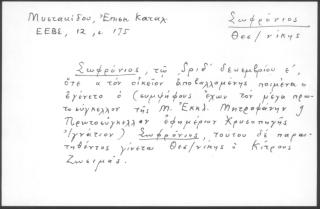 Μυστακίδου, Επισκ Καταλ
ΕΕΒΣ, 12, σ 175
Σωφρόνιος
Θεσ/νίκης
Σωφρόνιος, τῷ δεκεμβρίου ε´,
ὅτε τὸν οἰκεῖον ποιμένα
ἐγένετο ὁ (συμψήφους ἔχων τὸν μέγα πρω
τοσύγκελλον τῆς Μ. Ἐκκλ. Μητροφάνην
Πρωτοσύγκελλον ἐφημέριον Χρυσοπηγῆς
Ἰγνάτιον) Σωφρόνιος, τούτου δὲ παραι-
τηθέντος γίνεται Θεσ/νίκης ὁ Κίτρους
Ζωσιμᾶς.